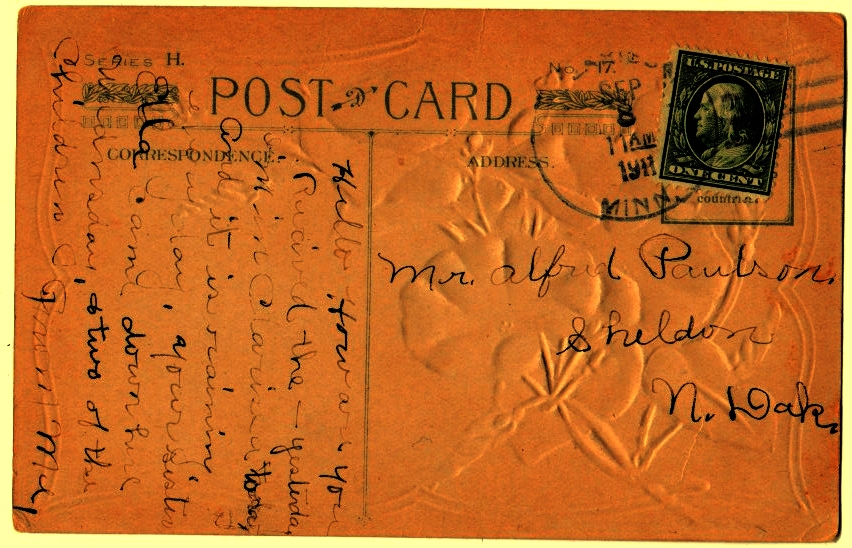 SERIES H.
No. 17.
POST CARD
CORRESPONDENCE.
ADDRESS.
SEP
8
11 AM
1911
MINN
U.S. POSTAGE
ONE CENT
Mr. Alfred Paulson.
Sheldon
N. Dak.
Hello, How are you
Recived the - yesterday
in Clarissa today
And it is rainin
day, your sister
Ella came down here
& two of the
Children